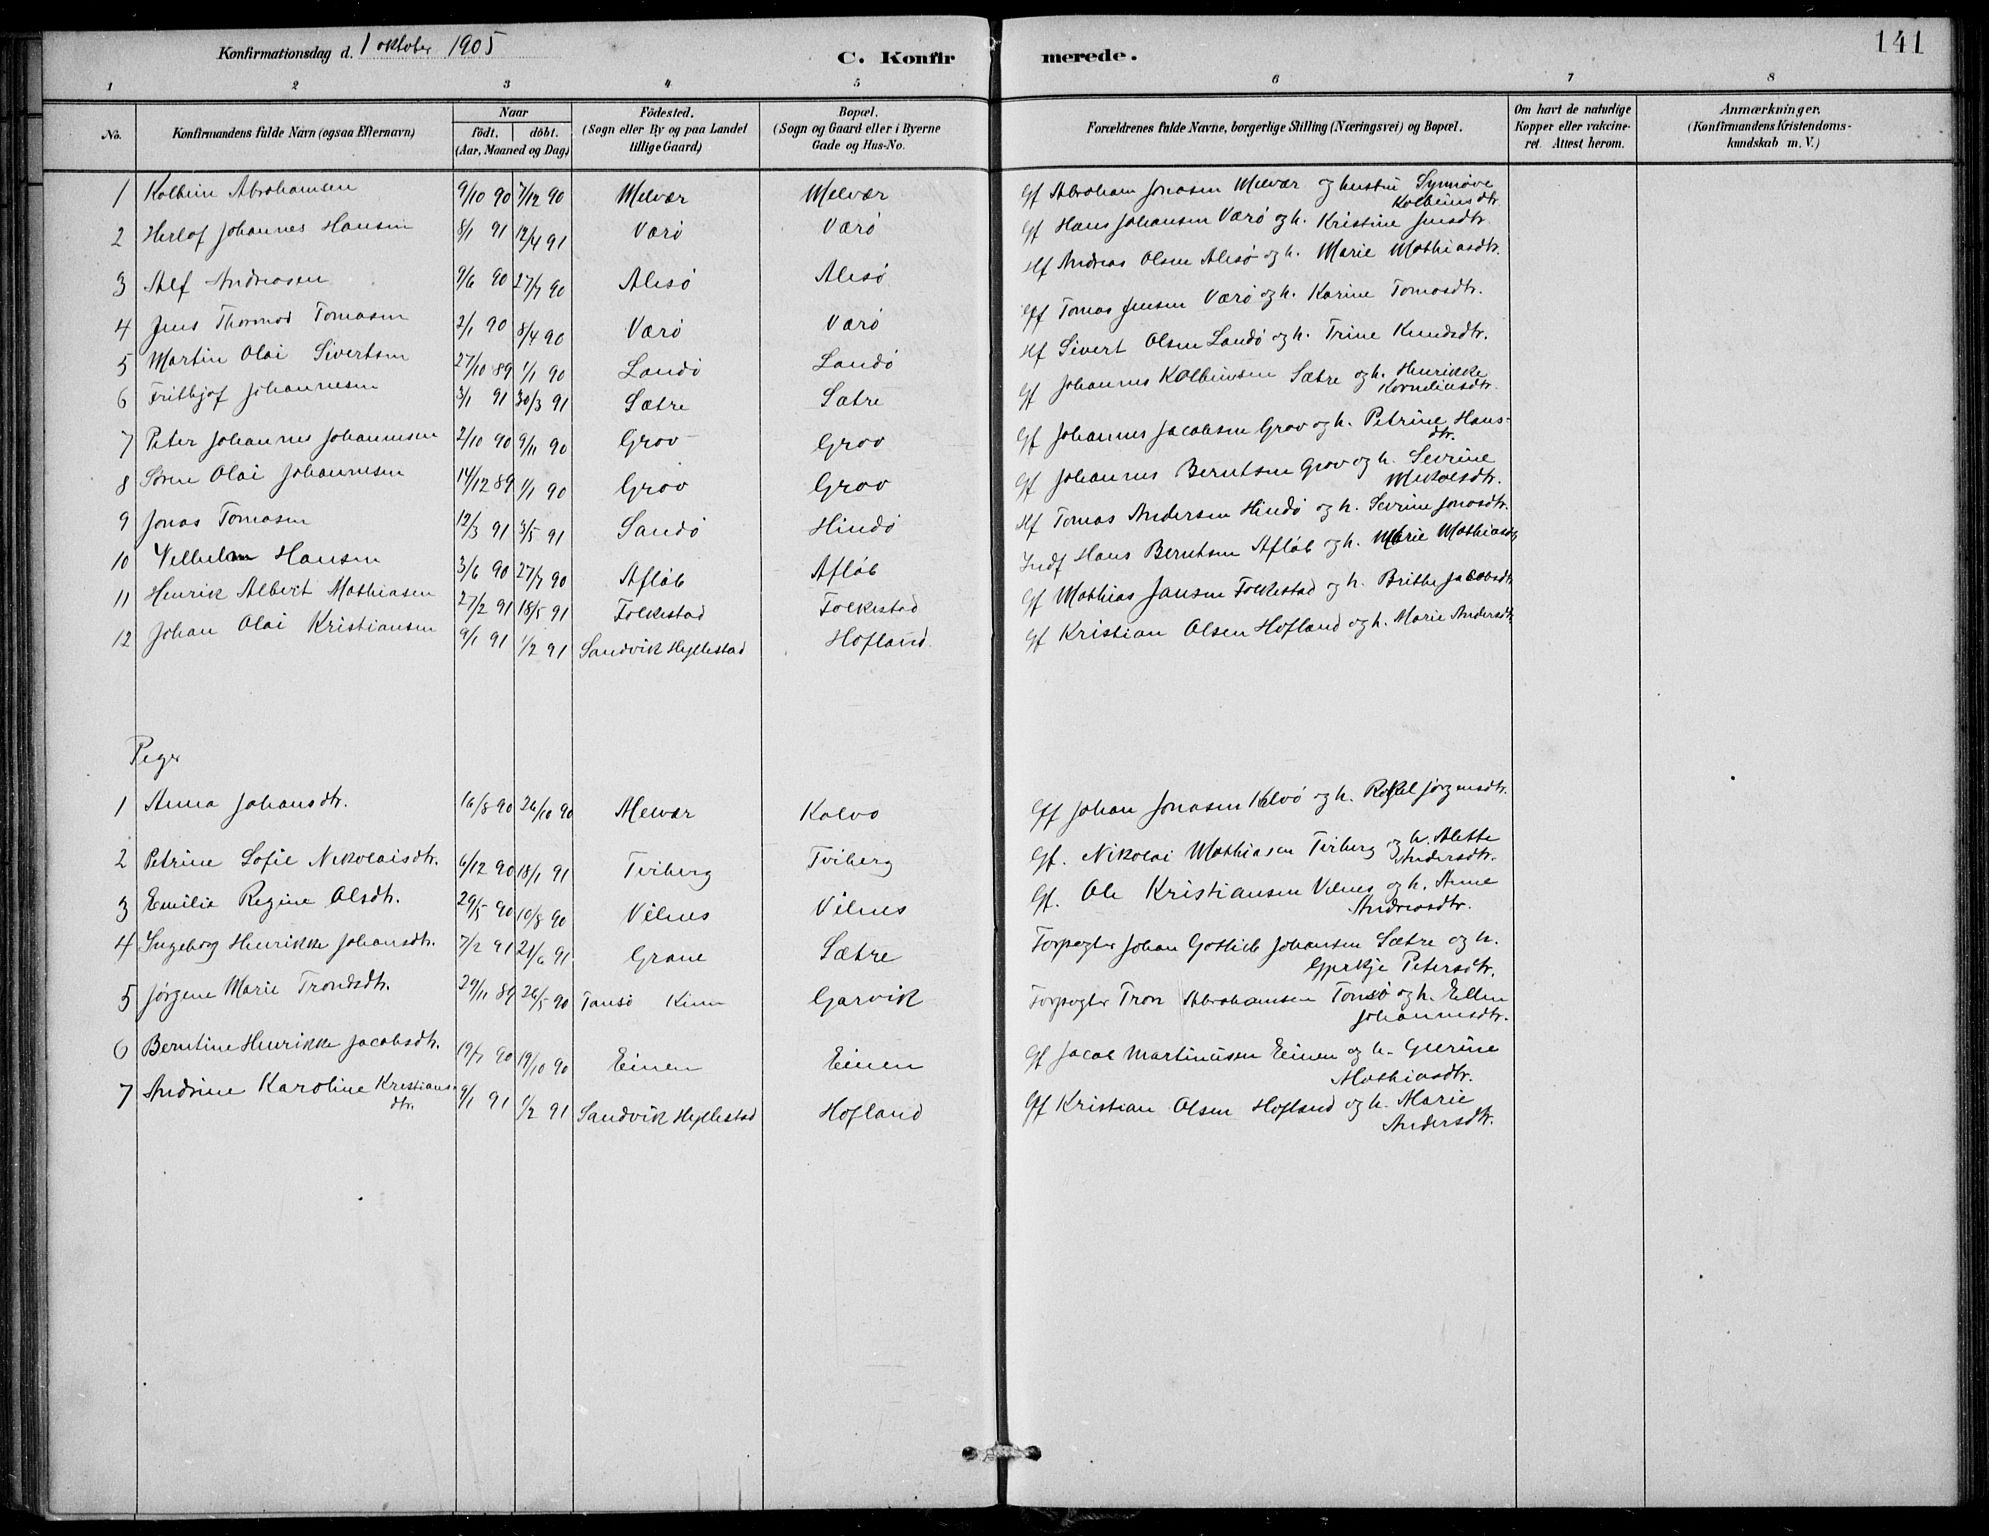 Konfirmationsdag d. 1 oktober 1905
C. Konfir merede.
141
1 2 3 4 5 6 7 8
No.
Konfirmandens fulde Navn (ogsaa Efternavn)
Naar
födt. döbt.
(Aar, Maaned og Dag)
Födested.
(Sogn eller By og paa Landet
tillige Gaard)
Bopæl.
(Sogn og Gaard eller i Byerne
Gade og Hus-No.
Forældrenes fulde Navne, borgerlige Stilling (Næringsvei) og Bopæl.
Om havt de naturlige
Kopper eller vakcine-
ret. Attest herom.
Anmærkninger.
(Konfirmandens Kristendoms-
kundskab m. V.)
1 Kolbein Abrahamsen 9/10 90 7/12 90 Melvær Melvær Gf Abraham Jonasen Melvær og hustru Synnøve
Kolbeinsdtr.
2 Herlof Johannes Hansen 8/1 91 12/4 91 Værö Værö Gf Hans Johansen Værö og h. Kristine Jensdtr.
3 Alf Andreasen 9/6 90 27/7 90 Alesö Alesö Hf Andreas Olsen Alesö og h. Marie Mathiasdtr.
4 Jens Thormod Tomasen 2/1 90 8/4 90 Værö Værö Gf Tomas Jensen Værö og h. Karine Tomasdtr.
5 Martin Olai Sivertsen 27/10 89 1/1 90 Landö Landö Hf Sivert Olsen Landö og h. Trine Knudsdtr.
6 Frithjof Johannesen 3/1 91 30/3 91 Sætre Sætre Gf Johannes Kolbeinsen Sætre og h. Henrikke
Korneliusdtr.
7 Peter Johannes Johannesen 2/10 90 9/11 90 Grov Grov Gf Johannes Jacobsen Grov og h. Petrine Hans-
dtr.
8 Sören Olai Johannesen 14/12 89 1/1 90 Grov Grov Gf Johannes Berntsen Grov og h. Sevrine
Mikkelsdtr.
9 Jonas Tomasen 12/3 91 3/5 91 Sandö Hindö Hf Tomas Andersen Hindö og h. Sevrine Jonasdtr.
10 Vilhelm Hansen 3/6 90 27/7 90 Aflöb Aflöb Indf Hans Berntsen Aflöb og h. Marie Mathiasdtr
11 Henrik Albert Mathiasen 27/2 91 18/5 91 Folkestad Folkestad Gf Mathias Jansen Folkestad og h. Brithe Jacobsdtr
12 Johan Olai Kristiansen 9/1 91 1/2 91 Sandvik Hyllestad Hofland Gf Kristian Olsen Hofland og h. Marie Andersdtr
Piger
1 Anna Johansdtr. 16/8 90 26/10 90 Melvær Kalvö Gf Johan Jonasen Kalvö og h. Rakel Jörgensdtr.
2 Petrine Sofie Nikolaisdtr. 6/12 90 18/1 91 Tviberg Tviberg Gf. Nikolai Mathiasen Tviberg og h. Alette
Andersdtr.
3 Emilie Regine Olsdtr. 29/5 90 10/8 90 Vilnes Vilnes Gf. Ole Kristiansen Vilnes og h. Anne
Andreasdtr.
4 Ingeborg Henrikke Johansdtr. 7/2 91 21/6 91 Grane Sætre Forpagter Johan Gotlieb Johansen Sætre og h.
Gjertje Petersdtr.
5 Jörgene Marie Trondsdtr. 29/11 89 26/5 90 Tansö Kinn Garvik Forpagter Tron Abrahamsen Tansö og h. Ellen
Johannesdtr.
6 Berntine Henrikke Jacobsdtr. 19/7 90 19/10 90 Einen Einen Gf Jacob Martinusen Einen og h. Geerine
Mathiasdtr.
7 Andrine Karoline Kristians-
dtr. 9/1 91 1/2 91 Sandvik Hyllestad Hofland Gf Kristian Olsen Hofland og h. Marie
Andersdtr.